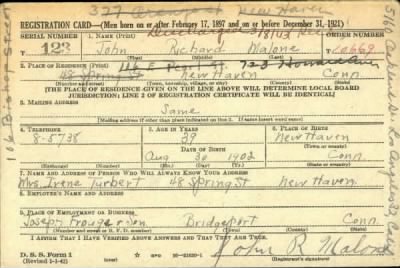 377 New Haven
REGISTRATION CARD—(Men born on or after February 17, 1897 and on or before December 31, 1921)
SERIAL NUMBER 1. NAME (Print) ORDER NUMBER
123 John Richard Malone 10669
2. PLACE OF RESIDENCE (Print) 723 Howard Ave
48 Spring St New Haven Conn.
(Number and street) (Town, township, village, or city) (County) (State)
[THE PLACE OF RESIDENCE GIVEN ON THE LINE ABOVE WILL DETERMINE LOCAL BOARD
JURISDICTION; LINE 2 OF REGISTRATION CERTIFICATE WILL BE IDENTICAL]
3. MAILING ADDRESS
Same
[Mailing address if other than place indicated on line 2. If same insert word same]
4. TELEPHONE 5. AGE IN YEARS 6. PLACE OF BIRTH
8-5738 39 New Haven
DATE OF BIRTH (Town or county)
Aug 30 1902 Conn.
(Exchange) (Number) (Mo.) (Day) (Yr.) (State or country)
7. NAME AND ADDRESS OF PERSON WHO WILL ALWAYS KNOW YOUR ADDRESS
Mrs. Irene Turbert 48 Spring St New Haven
8. EMPLOYER'S NAME AND ADDRESS
Joseph & Son
9. PLACE OF EMPLOYMENT OR BUSINESS
Bridgeport Conn.
(Number and street or R. F. D. number) (Town) (County) (State)
I AFFIRM THAT I HAVE VERIFIED ABOVE ANSWERS AND THAT THEY ARE TRUE.
D. S. S. Form 1
(Revised 1-1-42) (over) 16—21630-1 John R Malone
(Registrant's signature)
106 Bishop Street